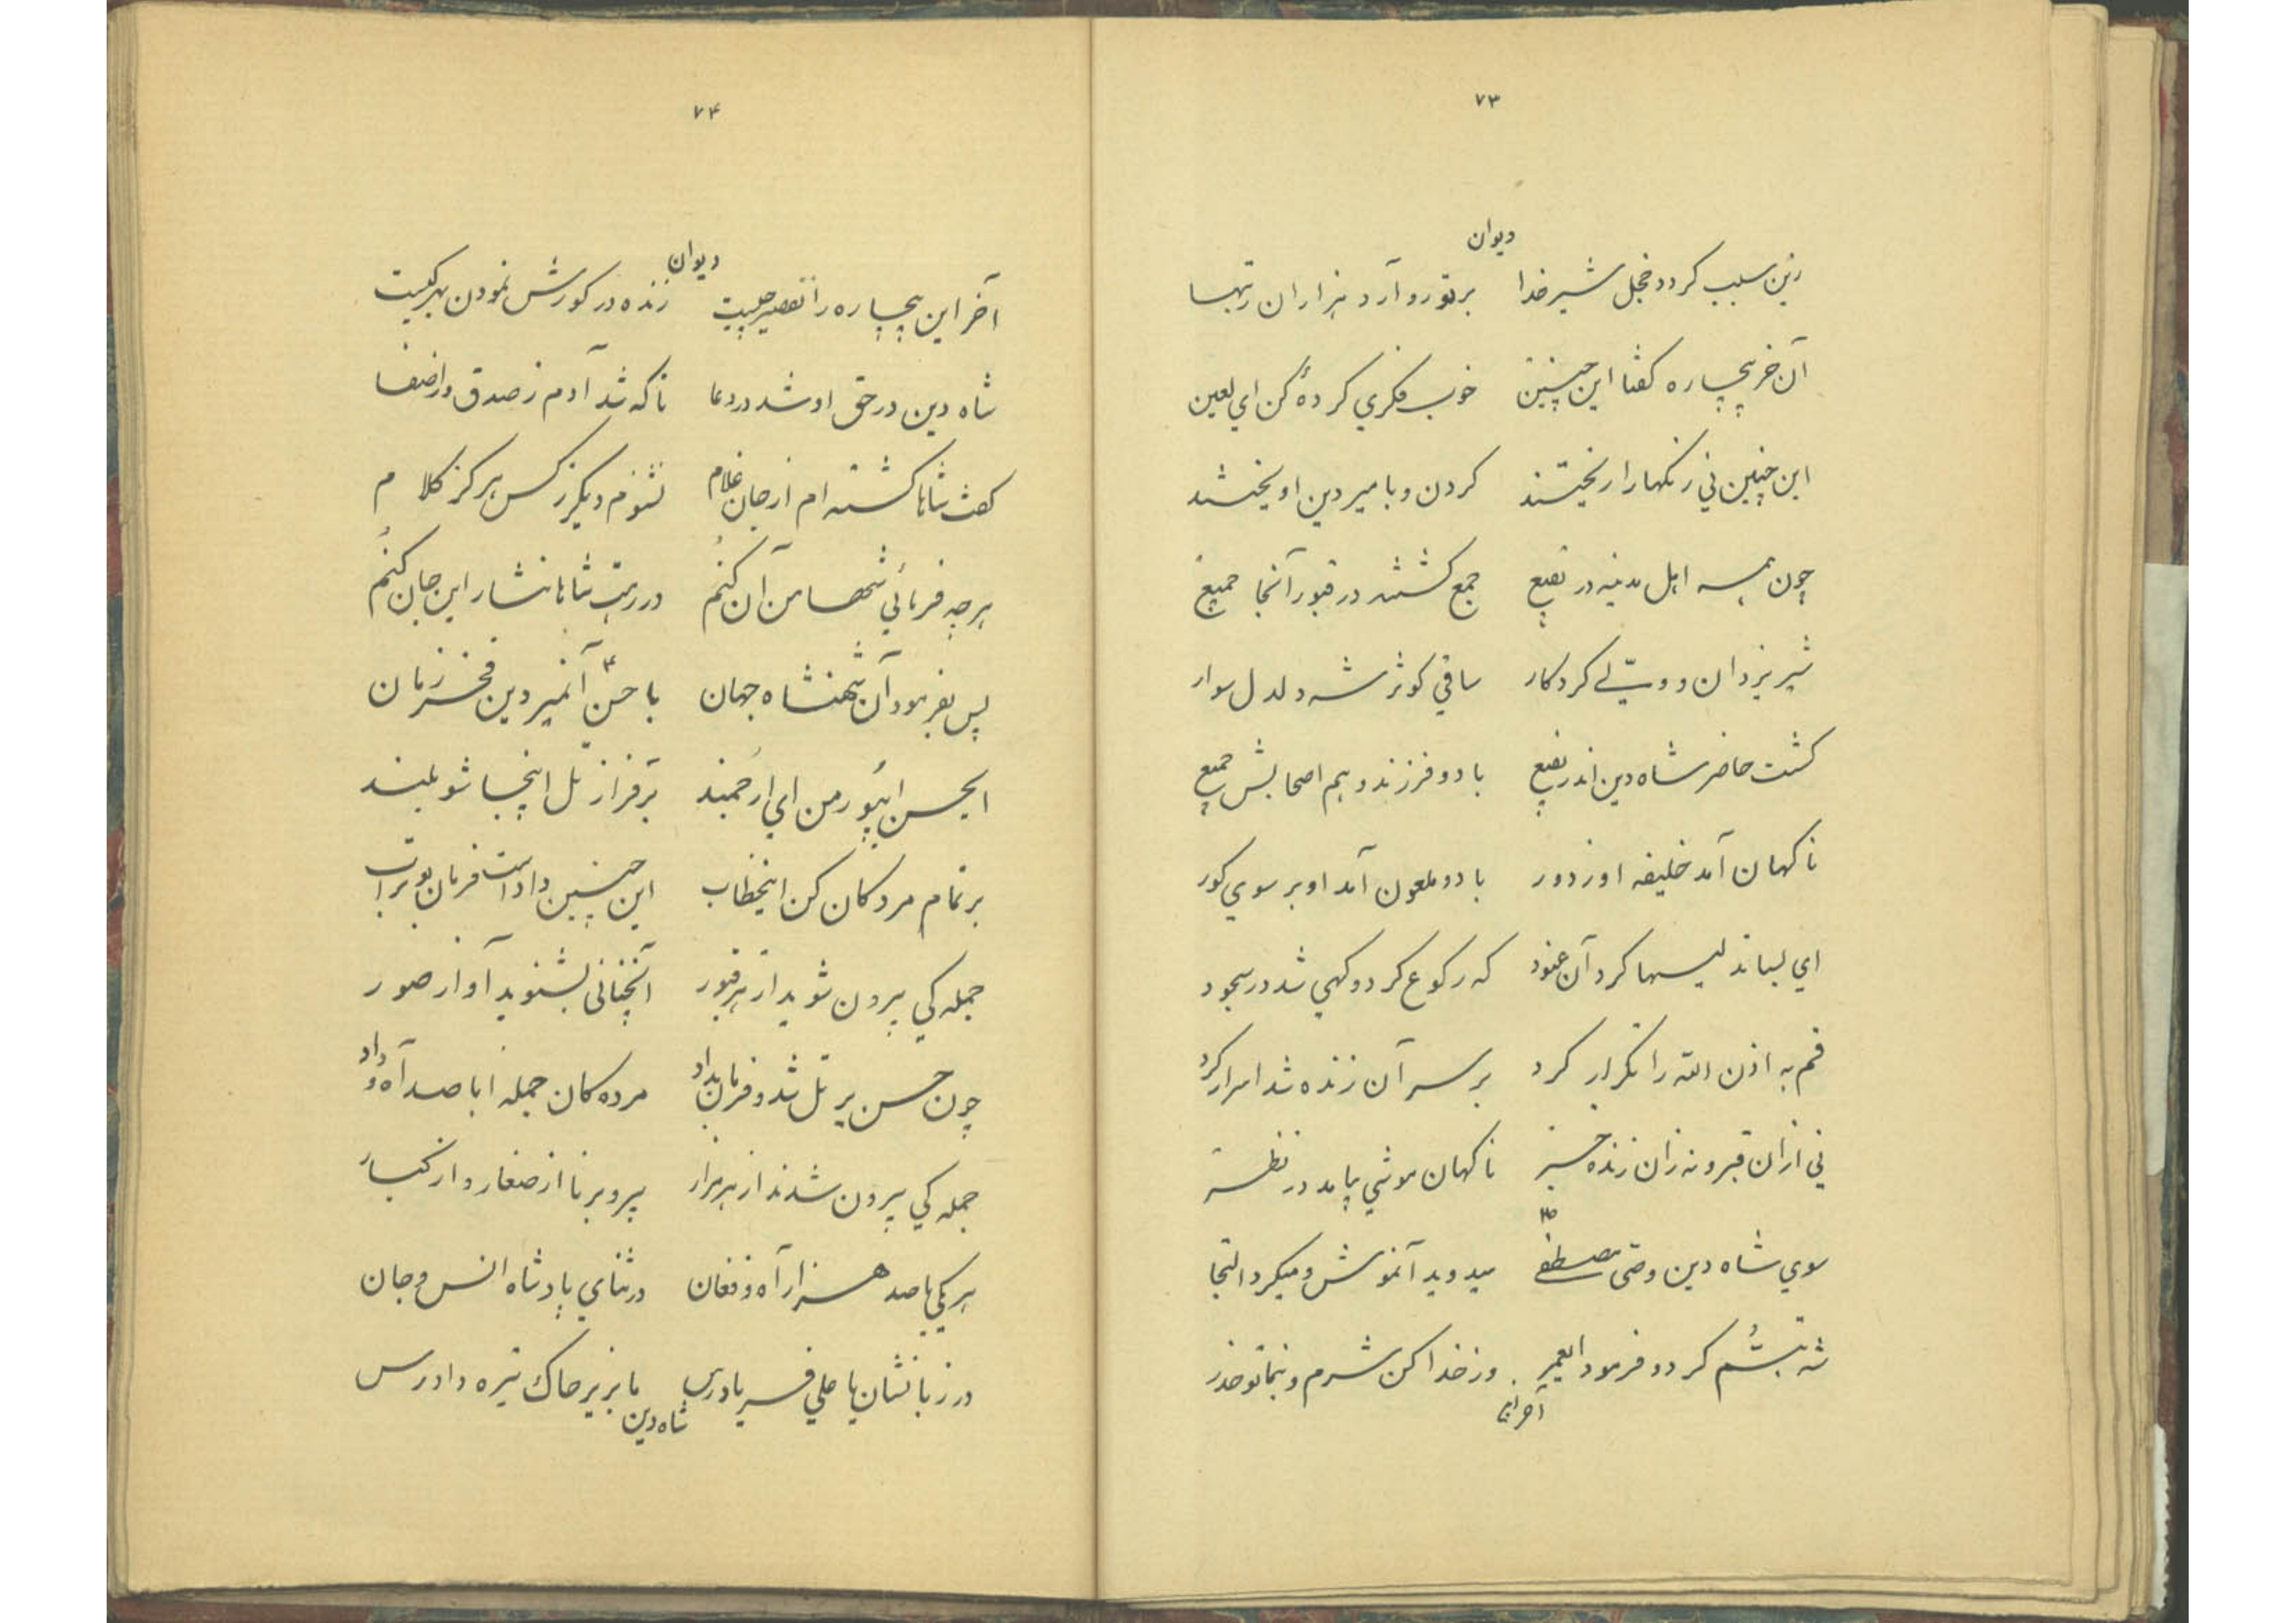 ۷۳
دیوان
زین سبب کردد خجل شیر خدا بر تو رو آرد هزاران رتبها
آن خر بیچاره کفتا این چنین خوب فکری کردهٔ کن ای لعین
این چنین نی رنکها را ریختند کردن و با میر دین اویختند
چون همه اهل مدینه در بقیع جمع کشتند در قبور آنجا جمیع
شیر یزدان و ولّی کردکار ساقی کوثر شه دلدل سوار
کشت حاضر شاه دین اندر بقیع با دو فرزند و هم اصحابش جمیع
ناکهان آمد خلیفه او ز دور با دو ملعون آمد او بر سوی کور
ای بسا تدلیسها کرد آن عنود که رکوع کرد و کهی شد در سجود
قم به اذن الله را تکرار کرد بر سر آن زنده شد اسرار کرد
نی ازان قبر و نه زان زنده خبر ناکهان موشی بیامد در نظر
سوی شاه دین وصّی مصطفی میدوید آنموش و میکرد التجا
شه تبسُّم کرد و فرمود ایعمر وز خدا کن شرم و بنما تو حذر
آخر این
۷۴
دیوان
آخر این بیچاره را تقصیر چیست زنده در کورش نمودن بهر کیست
شاه دین در حق او شد در دعا تا که شد آدم ز صدق و از صفا
کفت شاها کشته ام از جان غلام نشنوم دیکر ز کس هرکز کلام
هر چه فرمائی شها من آن کنُم در رهت شاها نثار این جان کنُم
پس بفرمود آن شهنشاه جهان با حسن آنمیر دین فخر زمان
ایحسن ای پُور من ای ارجُمند بر فراز تل اینجا شو بلند
بر تمام مردکان کن اینخطاب این چنین داد است فرمان بوتراب
جمله کی بیرون شوید از هر قبور آنچنانی بشنوید آواز صور
چون حسن بر تل شد و فرمان بداد مرده کان جمله ابا صد آه و داد
جمله کی بیرون شدند از هر مزار پیر و برنا از صغار و از کبار
هر یکی با صد هزار آه و فغان در ثنای پادشاه انس و جان
در زبانشان یا علی فریادرس ما بزیر خاک تیره دادرس
شاه دین